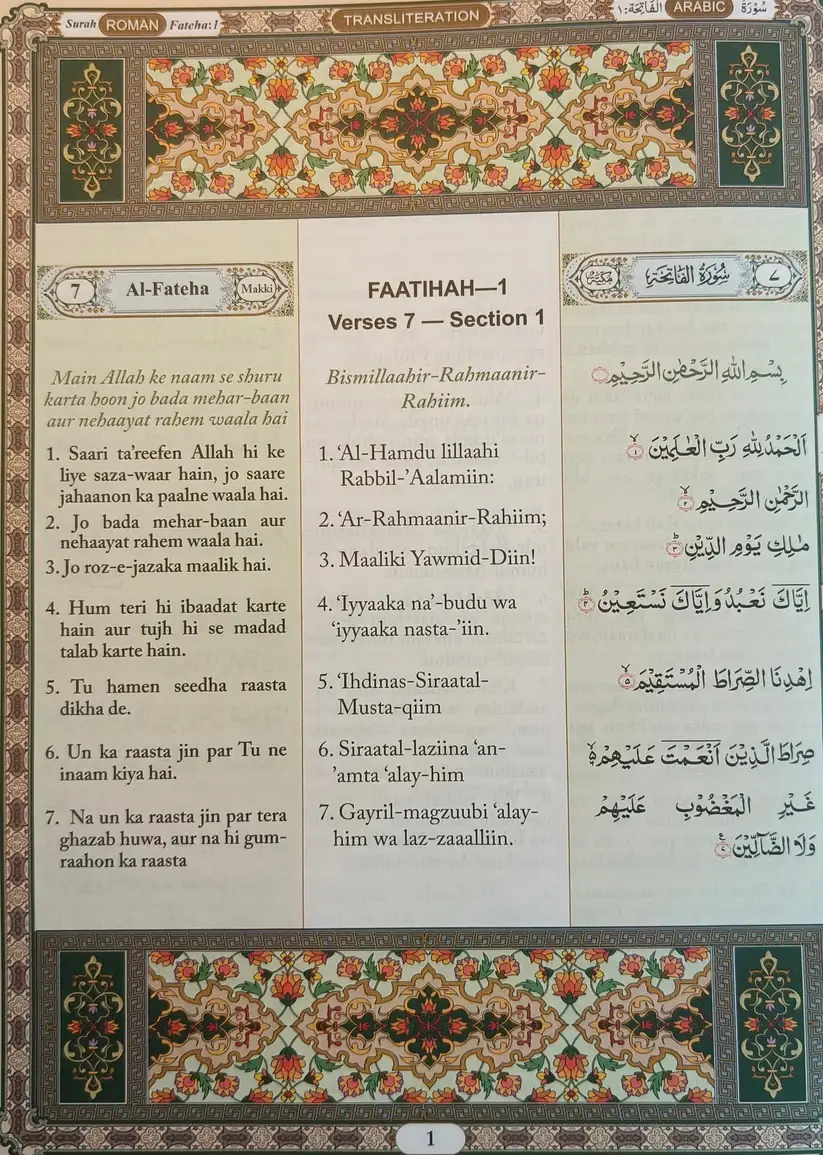 Surah ROMAN Fateha:1
TRANSLITERATION
الفَاتِحَة:١ ARABIC سُوْرَةُ
7 Al-Fateha Makki
Main Allah ke naam se shuru
karta hoon jo bada mehar-baan
aur nehaayat rahem waala hai
1. Saari ta'reefen Allah hi ke
liye saza-waar hain, jo saare
jahaanon ka paalne waala hai.
2. Jo bada mehar-baan aur
nehaayat rahem waala hai.
3. Jo roz-e-jazaka maalik hai.
4. Hum teri hi ibaadat karte
hain aur tujh hi se madad
talab karte hain.
5. Tu hamen seedha raasta
dikha de.
6. Un ka raasta jin par Tu ne
inaam kiya hai.
7. Na un ka raasta jin par tera
ghazab huwa, aur na hi gum-
raahon ka raasta
FAATIHAH—1
Verses 7 — Section 1
Bismillaahir-Rahmaanir-
Rahiim.
1. ‘Al-Hamdu lillaahi
Rabbil-’Aalamiin:
2. ‘Ar-Rahmaanir-Rahiim;
3. Maaliki Yawmid-Diin!
4. ‘Iyyaaka na’-budu wa
‘iyyaaka nasta-’iin.
5. ‘Ihdinas-Siraatal-
Musta-qiim
6. Siraatal-laziina ‘an-
’amta ‘alay-him
7. Gayril-magzuubi ‘alay-
him wa laz-zaaalliin.
٧ سُوْرَةُ الْفَاتِحَةِ مَكِّيَّةٌ
بِسْمِ اللهِ الرَّحْمٰنِ الرَّحِيْمِ
اَلْحَمْدُ لِلّٰهِ رَبِّ الْعٰلَمِيْنَ ۙ‏﴿۱﴾
الرَّحْمٰنِ الرَّحِيْمِ ۙ‏﴿۲﴾
مٰلِكِ يَوْمِ الدِّيْنِ ؕ‏﴿۳﴾
اِيَّاكَ نَعْبُدُ وَاِيَّاكَ نَسْتَعِيْنُ ؕ‏﴿۴﴾
اِهْدِنَا الصِّرَاطَ الْمُسْتَقِيْمَ ۙ‏﴿۵﴾
صِرَاطَ الَّذِيْنَ اَنْعَمْتَ عَلَيْهِمْ ۙ۬
غَيْرِ الْمَغْضُوْبِ عَلَيْهِمْ
وَلَا الضَّآلِّيْنَ‏﴿۷﴾
1